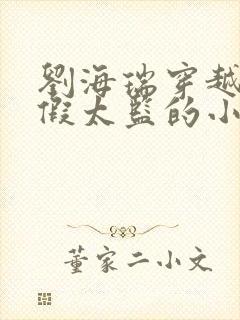 劉海瑞穿越
假太監的小
董家二小文